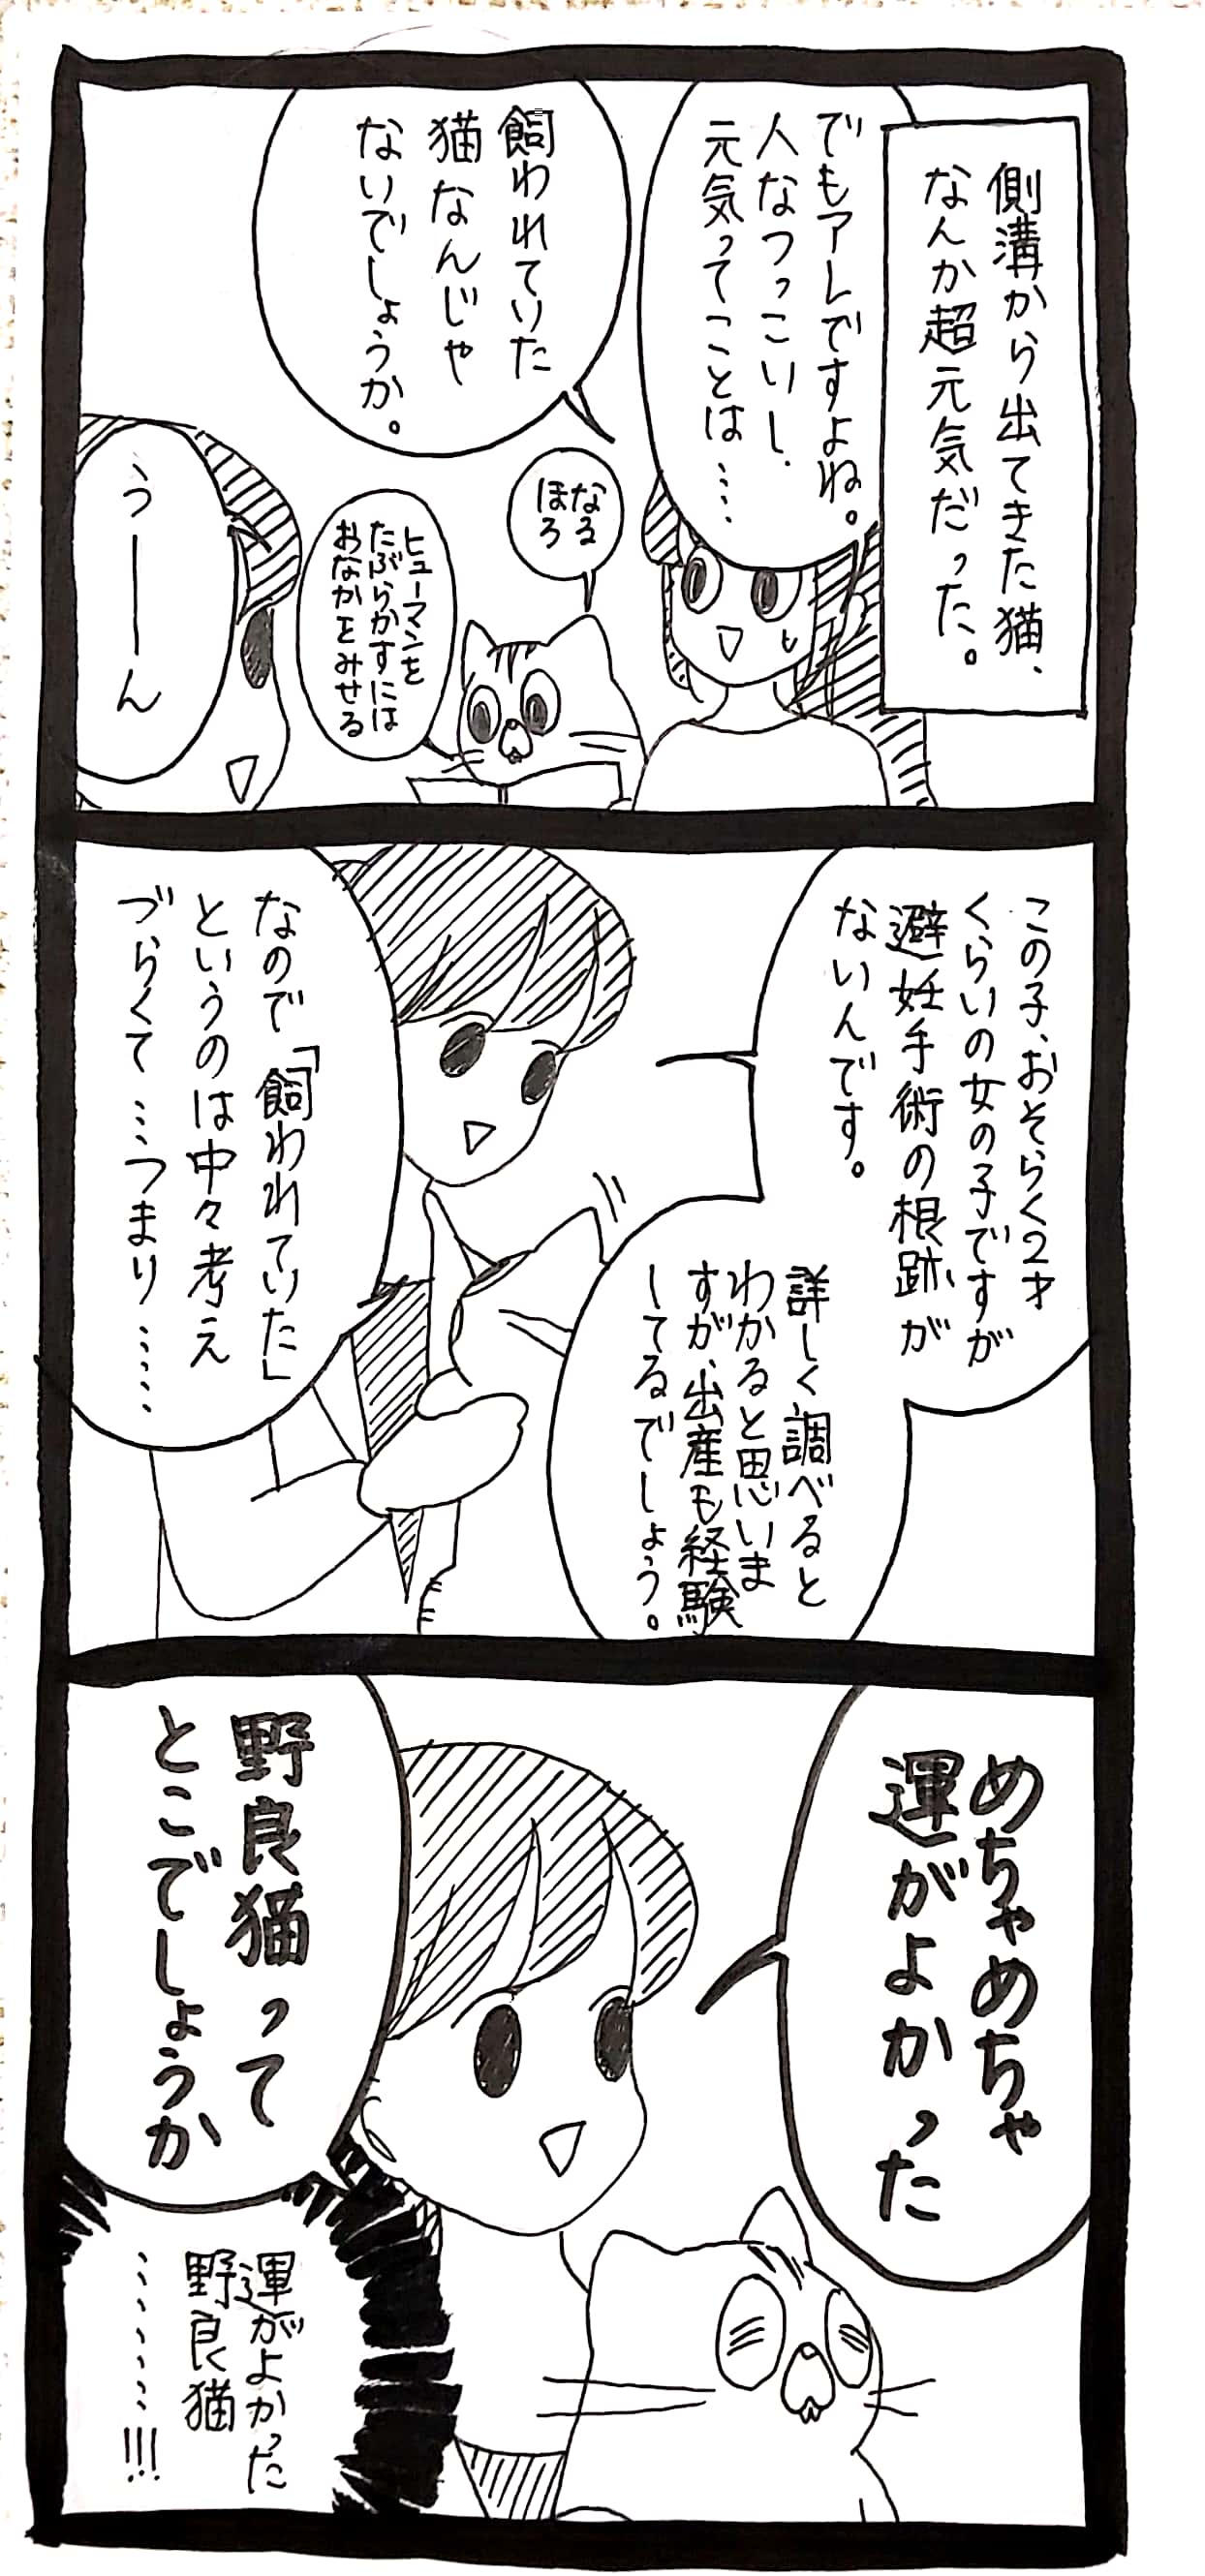 側溝から出てきた猫、
なんか超元気だった。
でもアレですよね。
人なつっこいし、
元気ってことは…
飼われていた
猫なんじゃ
ないでしょうか。
なる
ほろ
ヒューマンを
たぶらかすには
おなかをみせる
うーーん
この子、おそらく2才
くらいの女の子ですが
避妊手術の根跡が
ないんです。
詳しく調べると
わかると思いま
すが、出産も経験
してるでしょう。
なので「飼われていた」
というのは中々考え
づらくて…つまり……
めちゃめちゃ
運がよかった
野良猫って
とこでしょうか
運がよかった
野良猫
………!!!